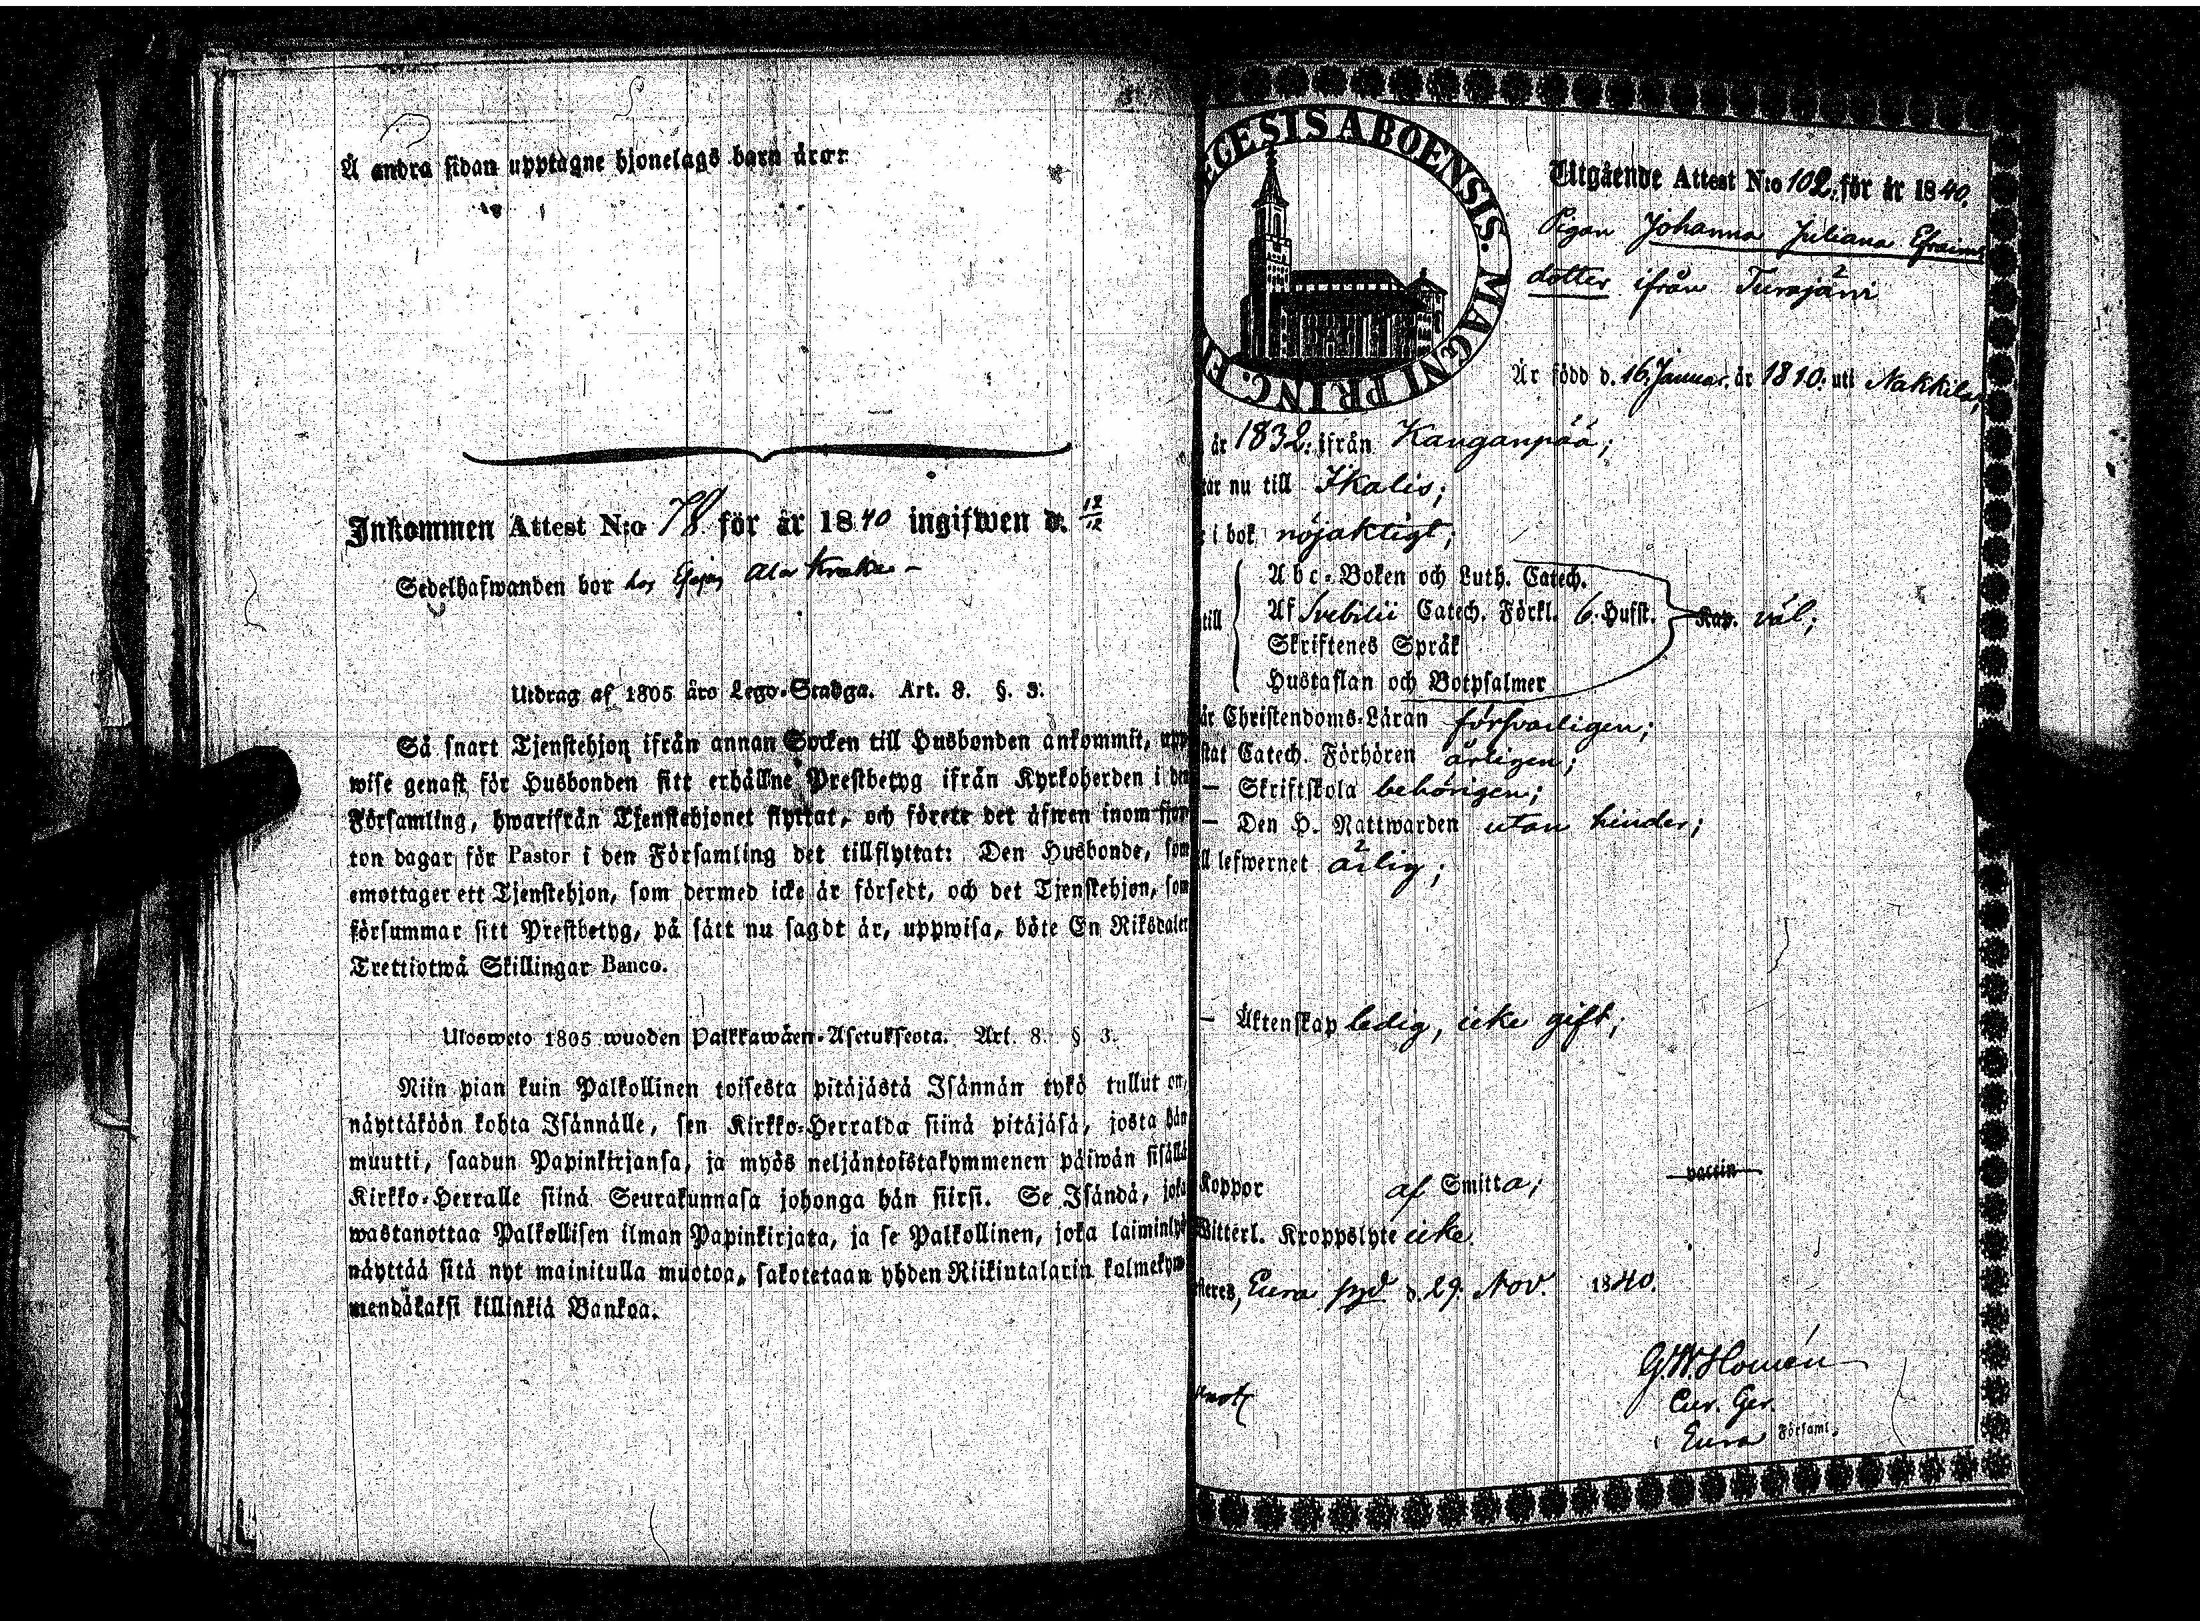 Å andra sidan upptagne hjonelags barn äro:
Inkommen Attest N:o 78 för år 1840 ingifwen d. 12/12
Sedelhafwanden bor hos Ala Kraka
Utdrag af 1805 års Lego-Stadga. Art. 8. §. 3.
Så snart Tjenstehjon ifrån annan Socken till Husbonden ankommit, upp
wise genast för Husbonden sitt erhållne Prestbetyg ifrån Kyrkoherden i den
Församling, hwarifrån Tjenstehjonet flyttat, och förete det äfwen inom fjor
ton dagar för Pastor i den Församling det tillflyttat: Den Husbonde, som
emottager ett Tjenstehjon, som dermed icke är försedt, och det Tjenstehjon, som
försummar sitt Prestbetyg, på sätt nu sagdt är, uppwisa, böte En Riksdaler
Trettiotwå Skillingar Banco.
Ulosweto 1805 wuoden Palkkawäen-Asetuksesta. Art. 8. § 3.
Niin pian kuin Palkollinen toisesta pitäjästä Isännän tykö tullut on,
näyttäköön kohta Isännälle, sen Kirkko-Herralda siinä pitäjäsä, josta hän
muutti, saadun Papinkirjansa, ja myös neljäntoistakymmenen päiwän sisällä
Kirkko-Herralle siinä Seurakunnasa johonga hän siirsi. Se Isändä, joka
wastanottaa Palkollisen ilman Papinkirjata, ja se Palkollinen, joka laiminlyö
näyttää sitä nyt mainitulla muotoa, sakotetaan yhden Riikintalarin kolmekym
mendäkaksi killinkiä Bankoa.
EGESIS ABOENSIS. MAGNI PRINC. F
Utgående Attest N:o 102. för år 1840.
Pigan Johanna Juliana Efraims
dotter ifrån Turajärvi
Är född d. 16. Januar. år 1810. uti Nakkila;
år 1832. ifrån Kanganpää;
tar nu till Ikalis;
i bok nöjaktigt;
till
Abc-Boken och Luth. Catech.
Af Svebilii Catech. Förkl. 6. Hufst. Kap. väl;
Skriftenes Språk
Hustaflan och Botpsalmer
är Christendoms-Läran försvarligen;
stat Catech. Förhören årligen;
— Skriftskola behörigen;
— Den H. Nattwarden utan hinder;
ll lefwernet ärlig;
— Äktenskap ledig, icke gift;
Koppor af Smitta; vaccin
Witterl. Kroppslyte icke.
steres, Eura d. 29. Nov. 1840.
G.W. Homén
Cur. Ger.
Eura Församl.